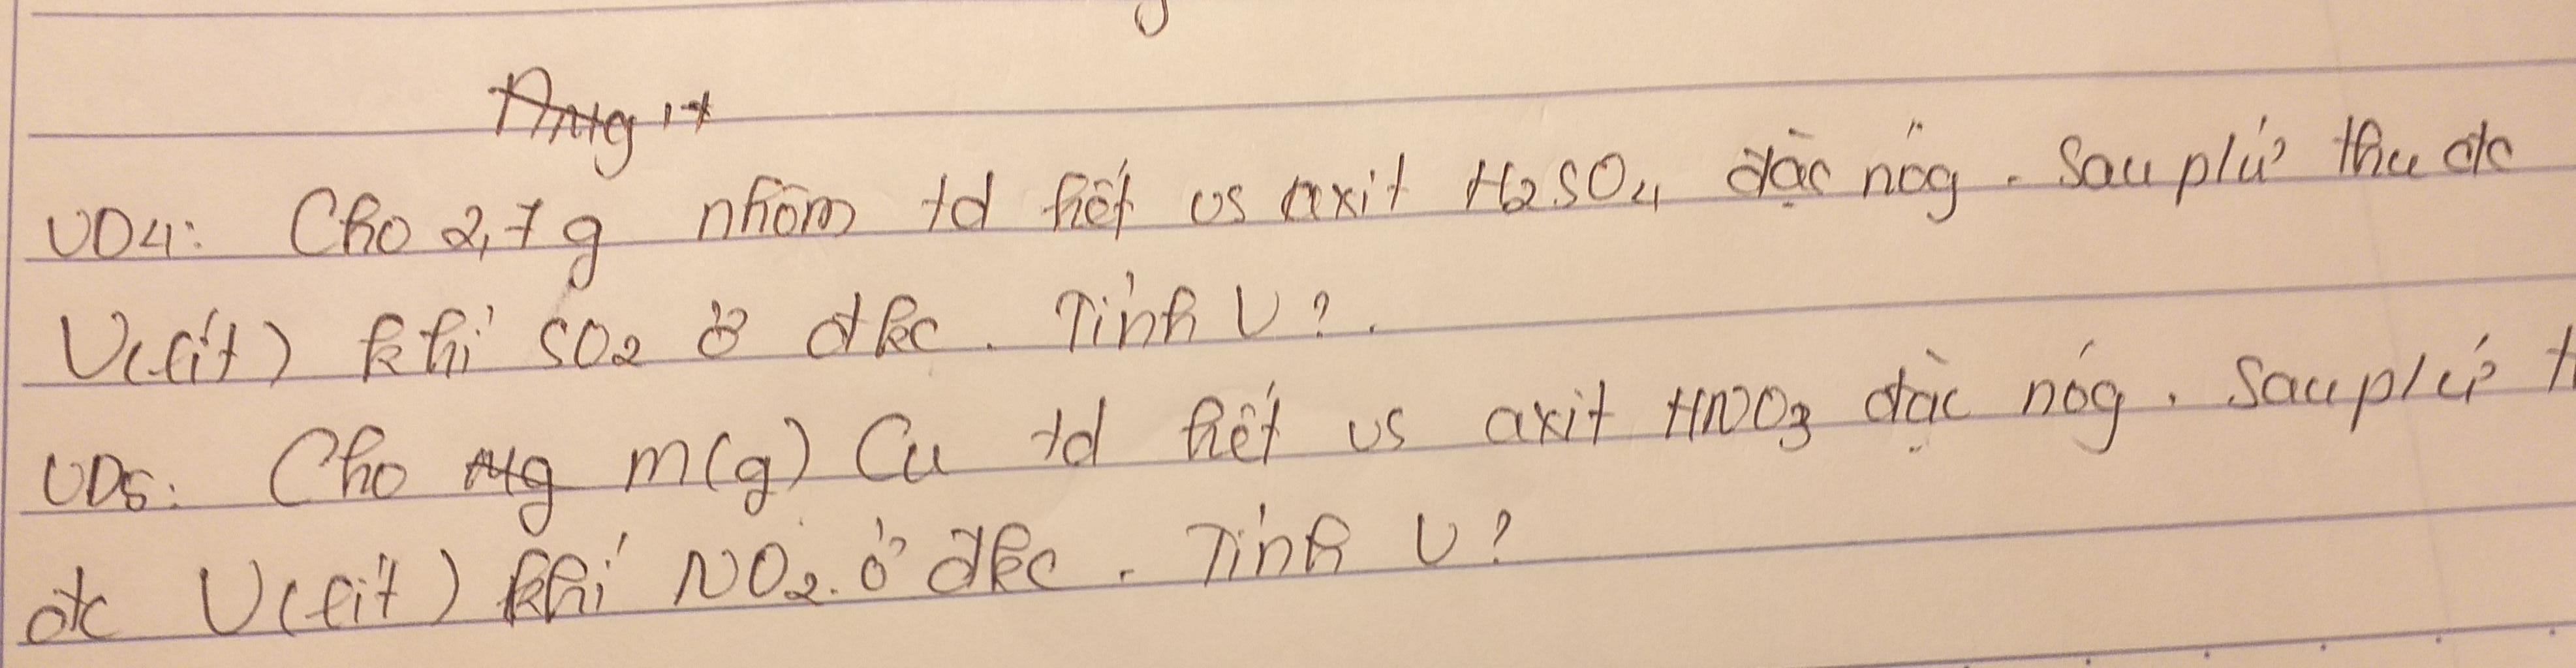 VD4: Cho 2,7g nhôm td hết vs axit H2SO4 đặc nóg. Sau pứ thu đc
V(lít) khí SO2 ở đkc. Tính V?.
VD5: Cho Mg m(g) Cu td hết vs axit HNO3 đặc nóg. Sau pứ t
đc V(lít) khí NO2 ở đkc. Tính V?